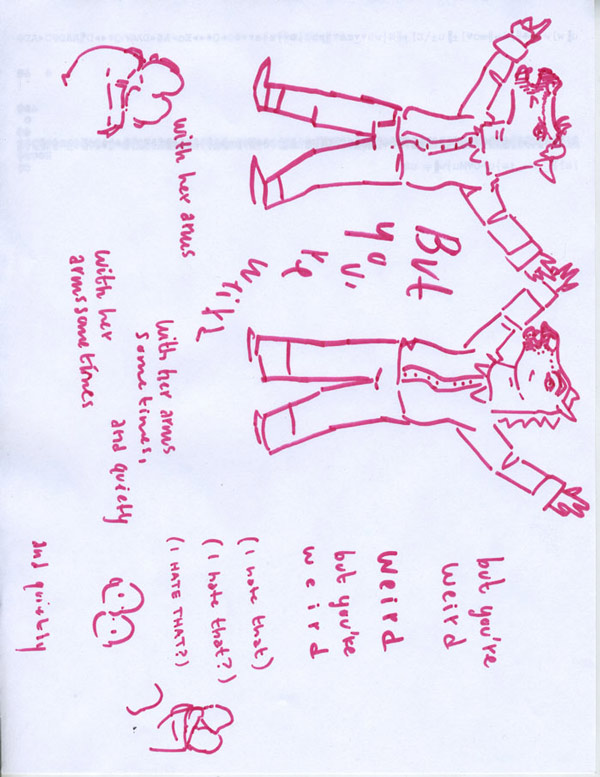 But
yo
u'
re
but you're
weird
weird
but you're
weird
(I hate that)
(I hate that?)
(I HATE THAT?)
with her arms
with her arms
sometimes,
and quietly
with her
arms sometimes
and quietly